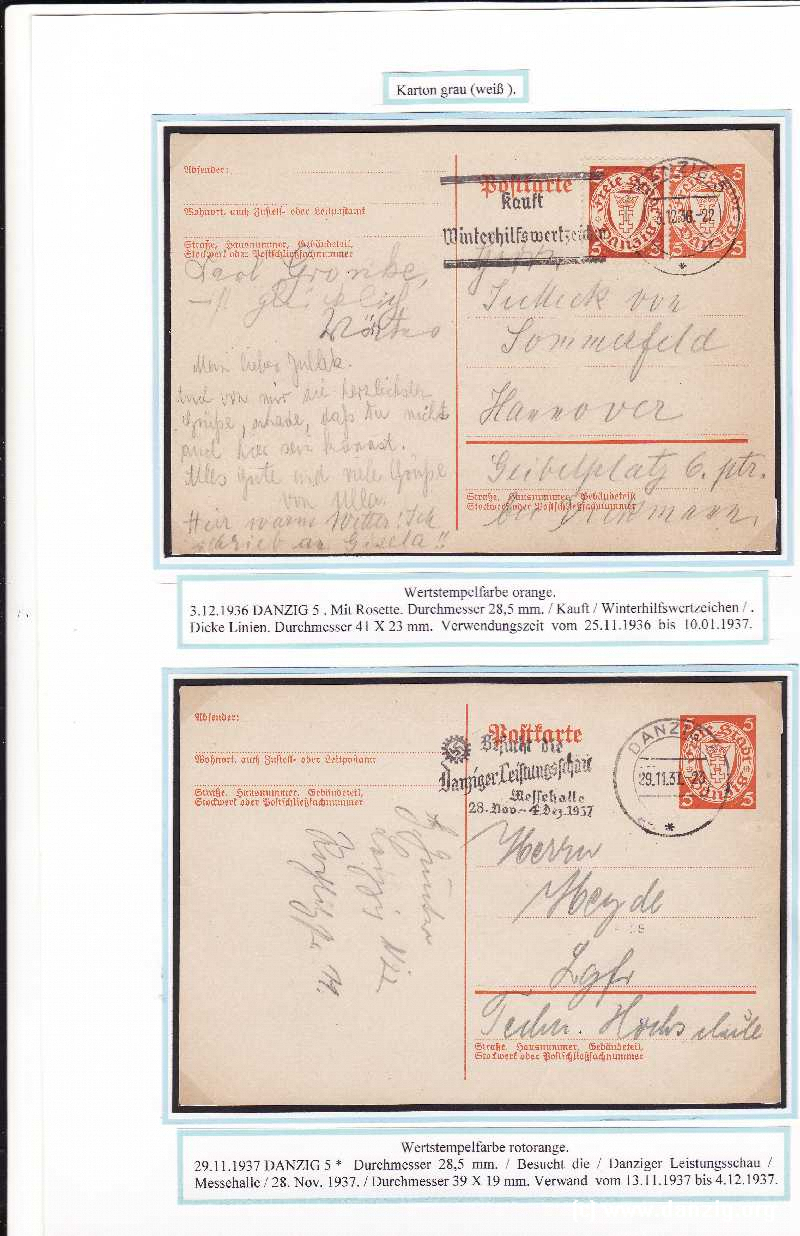 Karton grau (weiß ).
Absender:
Wohnort, auch Zustell- oder Leitpostamt
Straße, Hausnummer, Gebäudeteil,
Stockwerk oder Postschließfachnummer
Postkarte
Kauft
Winterhilfswertzeichen
Freie Stadt
Danzig
5 5
5 5
DANZIG
3.12.36.-22
5 5
5 5
Mein lieber Jullek.
und von mir die herzlichsten
Grüße, schade, daß Du nicht
auch hier sein kannst.
Alles Gute und viele Grüße
von Ulla.
Hier warmes Wetter! Ich
schrieb an Gisela!!
von
Sommerfeld
Hannover
Geibelplatz 6. ptr.
bei
Straße, Hausnummer, Gebäudeteil,
Stockwerk oder Postschließfachnummer
Wertstempelfarbe orange.
3.12.1936 DANZIG 5 . Mit Rosette. Durchmesser 28,5 mm. / Kauft / Winterhilfswertzeichen / .
Dicke Linien. Durchmesser 41 X 23 mm. Verwendungszeit vom 25.11.1936 bis 10.01.1937.
Absender:
Wohnort, auch Zustell- oder Leitpostamt
Straße, Hausnummer, Gebäudeteil,
Stockwerk oder Postschließfachnummer
Postkarte
Besucht die
Danziger Leistungsschau
Messehalle
28. Nov.- 4. Dez. 1937
DANZIG
29.11.37.
5 5
5 5
Herrn
Heyde
Lgfr
Techn. Hochschule
Straße, Hausnummer, Gebäudeteil,
Stockwerk oder Postschließfachnummer
Wertstempelfarbe rotorange.
29.11.1937 DANZIG 5 * Durchmesser 28,5 mm. / Besucht die / Danziger Leistungsschau /
Messehalle / 28. Nov. 1937. / Durchmesser 39 X 19 mm. Verwand vom 13.11.1937 bis 4.12.1937.
(c) www.danzig.org